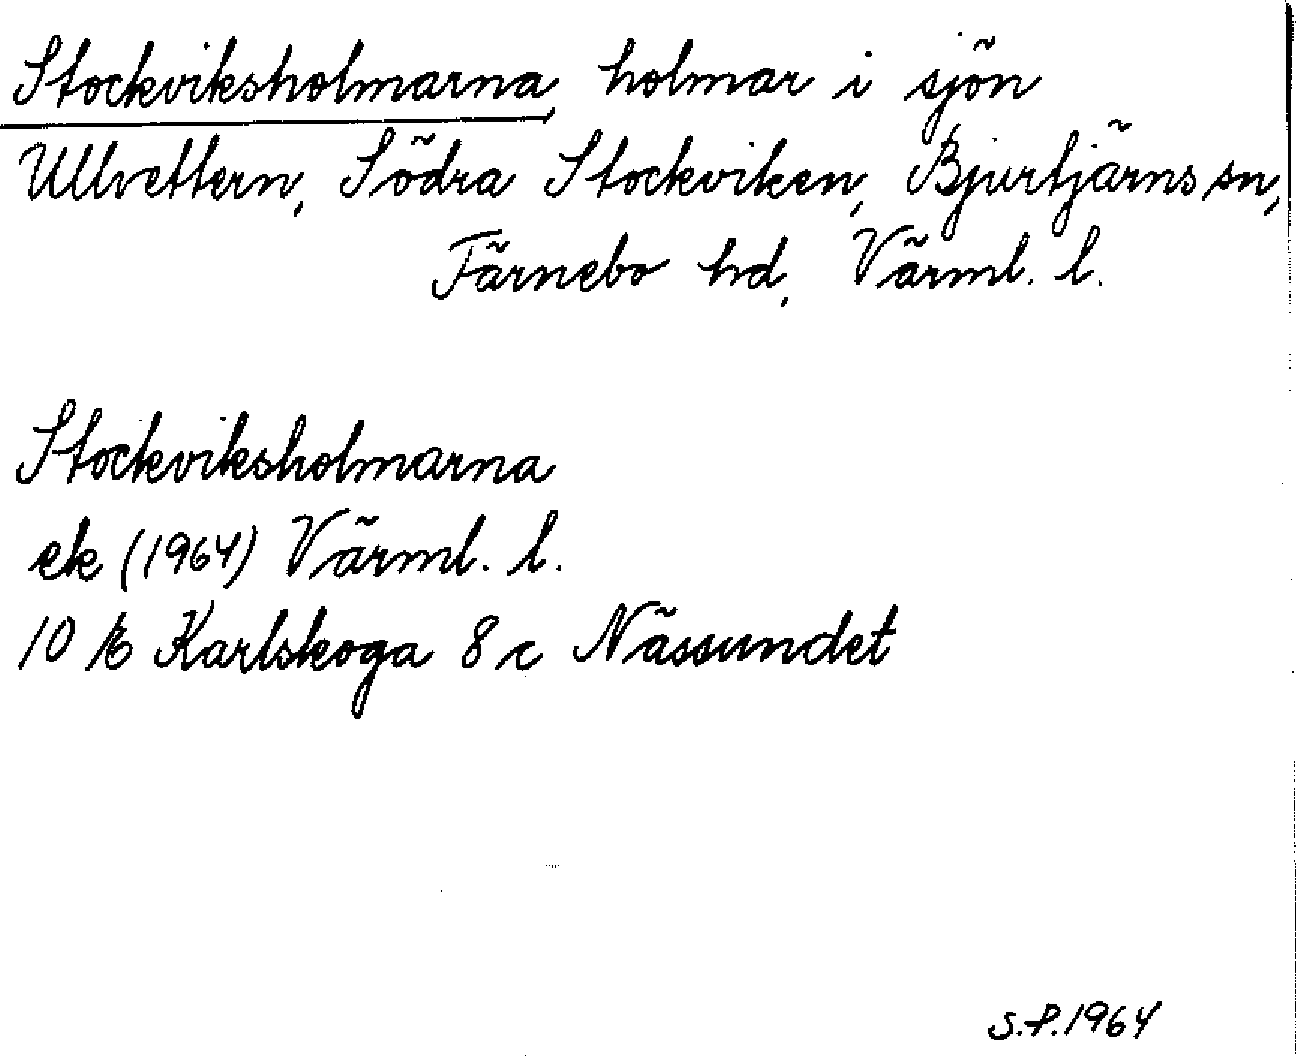 Stockviksholmarna, holmar i sjön
Ullvettern, Södra Stockviken, Bjurtjärns sn,
Färnebo hd, Värml. l.
Stockviksholmarna
ek (1964) Värml. l.
10 E Karlskoga 8 c Nässundet
S.P. 1964